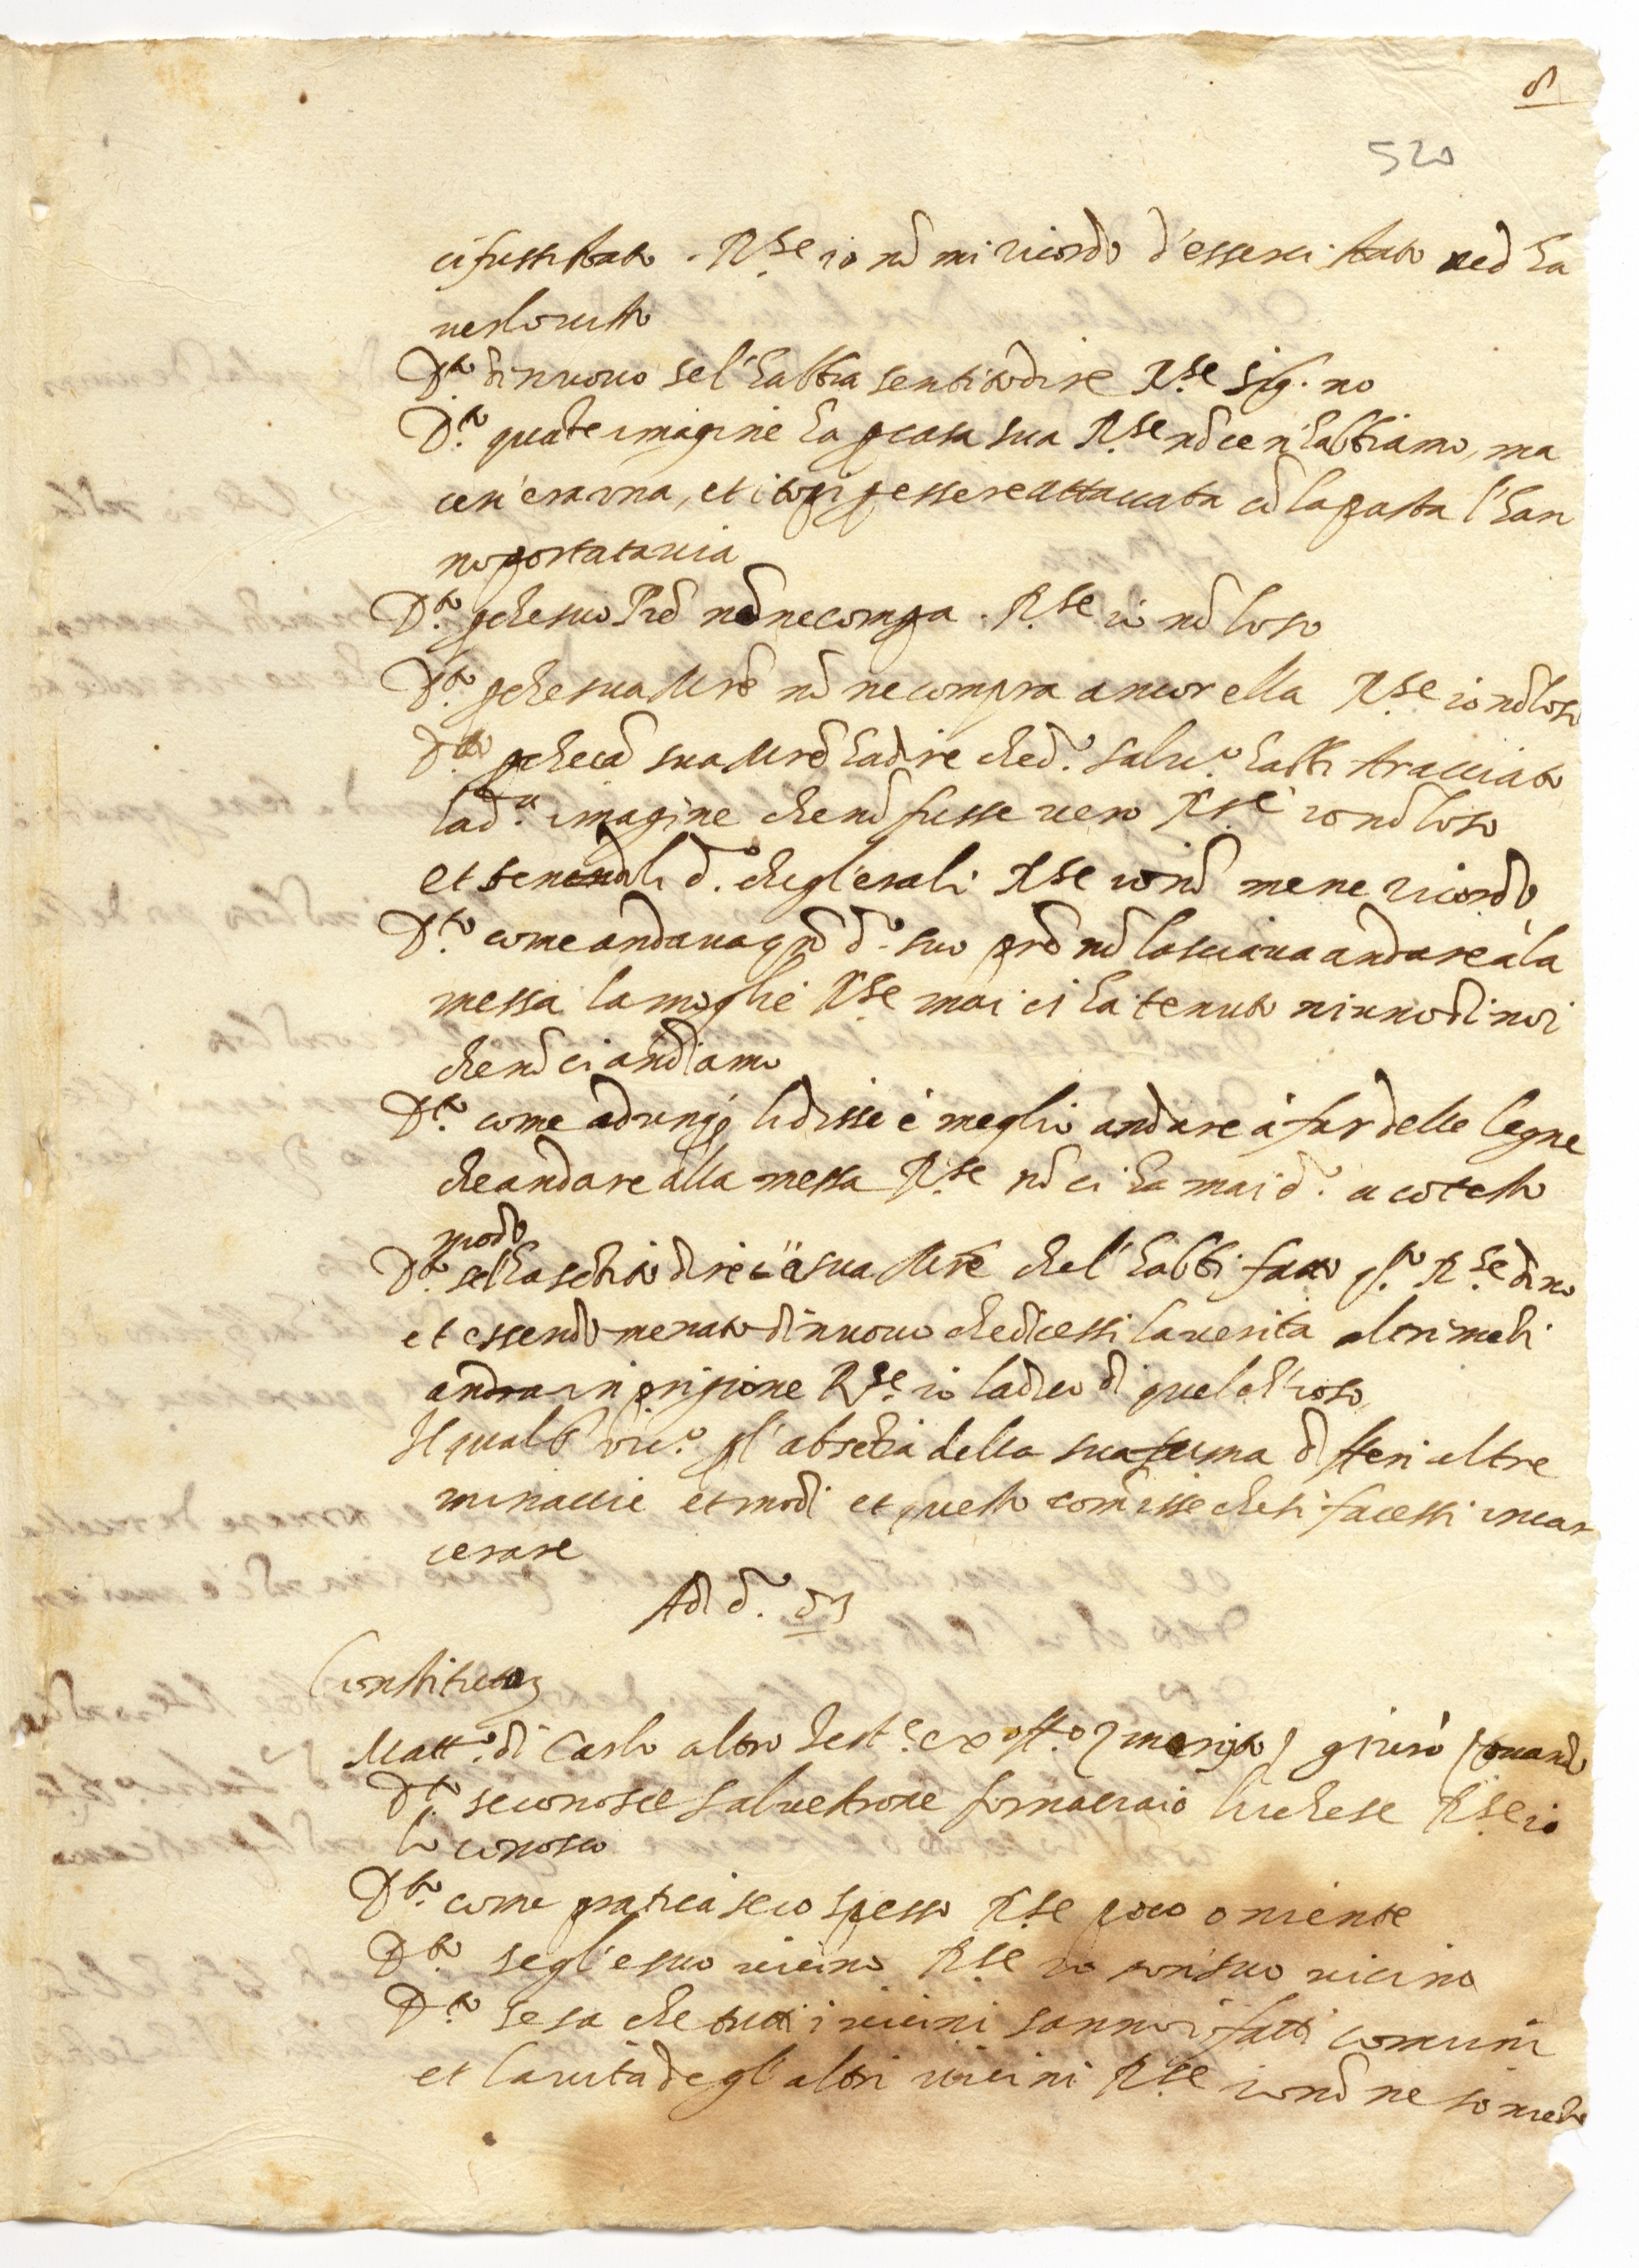 8
520
ci fussi stato . R.se io nō mi ricordo d'esserci stato ned ha
verlo visto
D.to di nuovo se l'habbia sentito dire R.se sig. no
D.to quale imagine ha p casa sua R.se nō ce n'habbiamo, ma
cen'era una, et i topi p essere attaccata cō la pasta l'han
no portata via
D.to p che suo Prē nō ne compra . R.se io nō lo so
D.to p che sua Mrē nō ne compra ancor ella R.se io nō lo so
D.to p che cō sua Mrē ha dire che d.o Salv.o habbi stracciato
la d.a imagine che nō fusse vero R.se io nō lo so
et d.o che gl'era li R.se io nō me ne ricordo
D.to come andava qn̄ d.o suo prē nō lasciava andare à la
messa la moglie R.se mai ci ha tenuto niuno di noi
che nō ci andiamo
D.to come adunq̄ li disse è meglio andare à far delle legne
che andare alla messa R.se nō ci ha mai d.o a cotesto
modo
D.to se l'ha sētito dire à sua Mrē che l'habbi fatto R.se di no
et essendo menato di nuovo che dicessi la verità altrimēti
andra in prigione R.se io la dico di quel ch'io so
Il qual S. Vic.o p l'absētia della sua ferma di ffen altre
minaccie et modi et questo comisse che si facessi incar
cerare
Adi d.o
Constitutoz
Matt.o di Carlo altro test.e ex off.o giurò toccando
D.to se conosce Salvestrone fornaciaio luchese R.se io
lo conosco
D.to come pratica seco spesso R.se poco o niente
D.to se gl'e suo vicino R.se io son suo vicino
D.to se sa che tutti i vicini sanno i fatti comuni
et la vita degl'altri vicini R.se io nō ne so niente